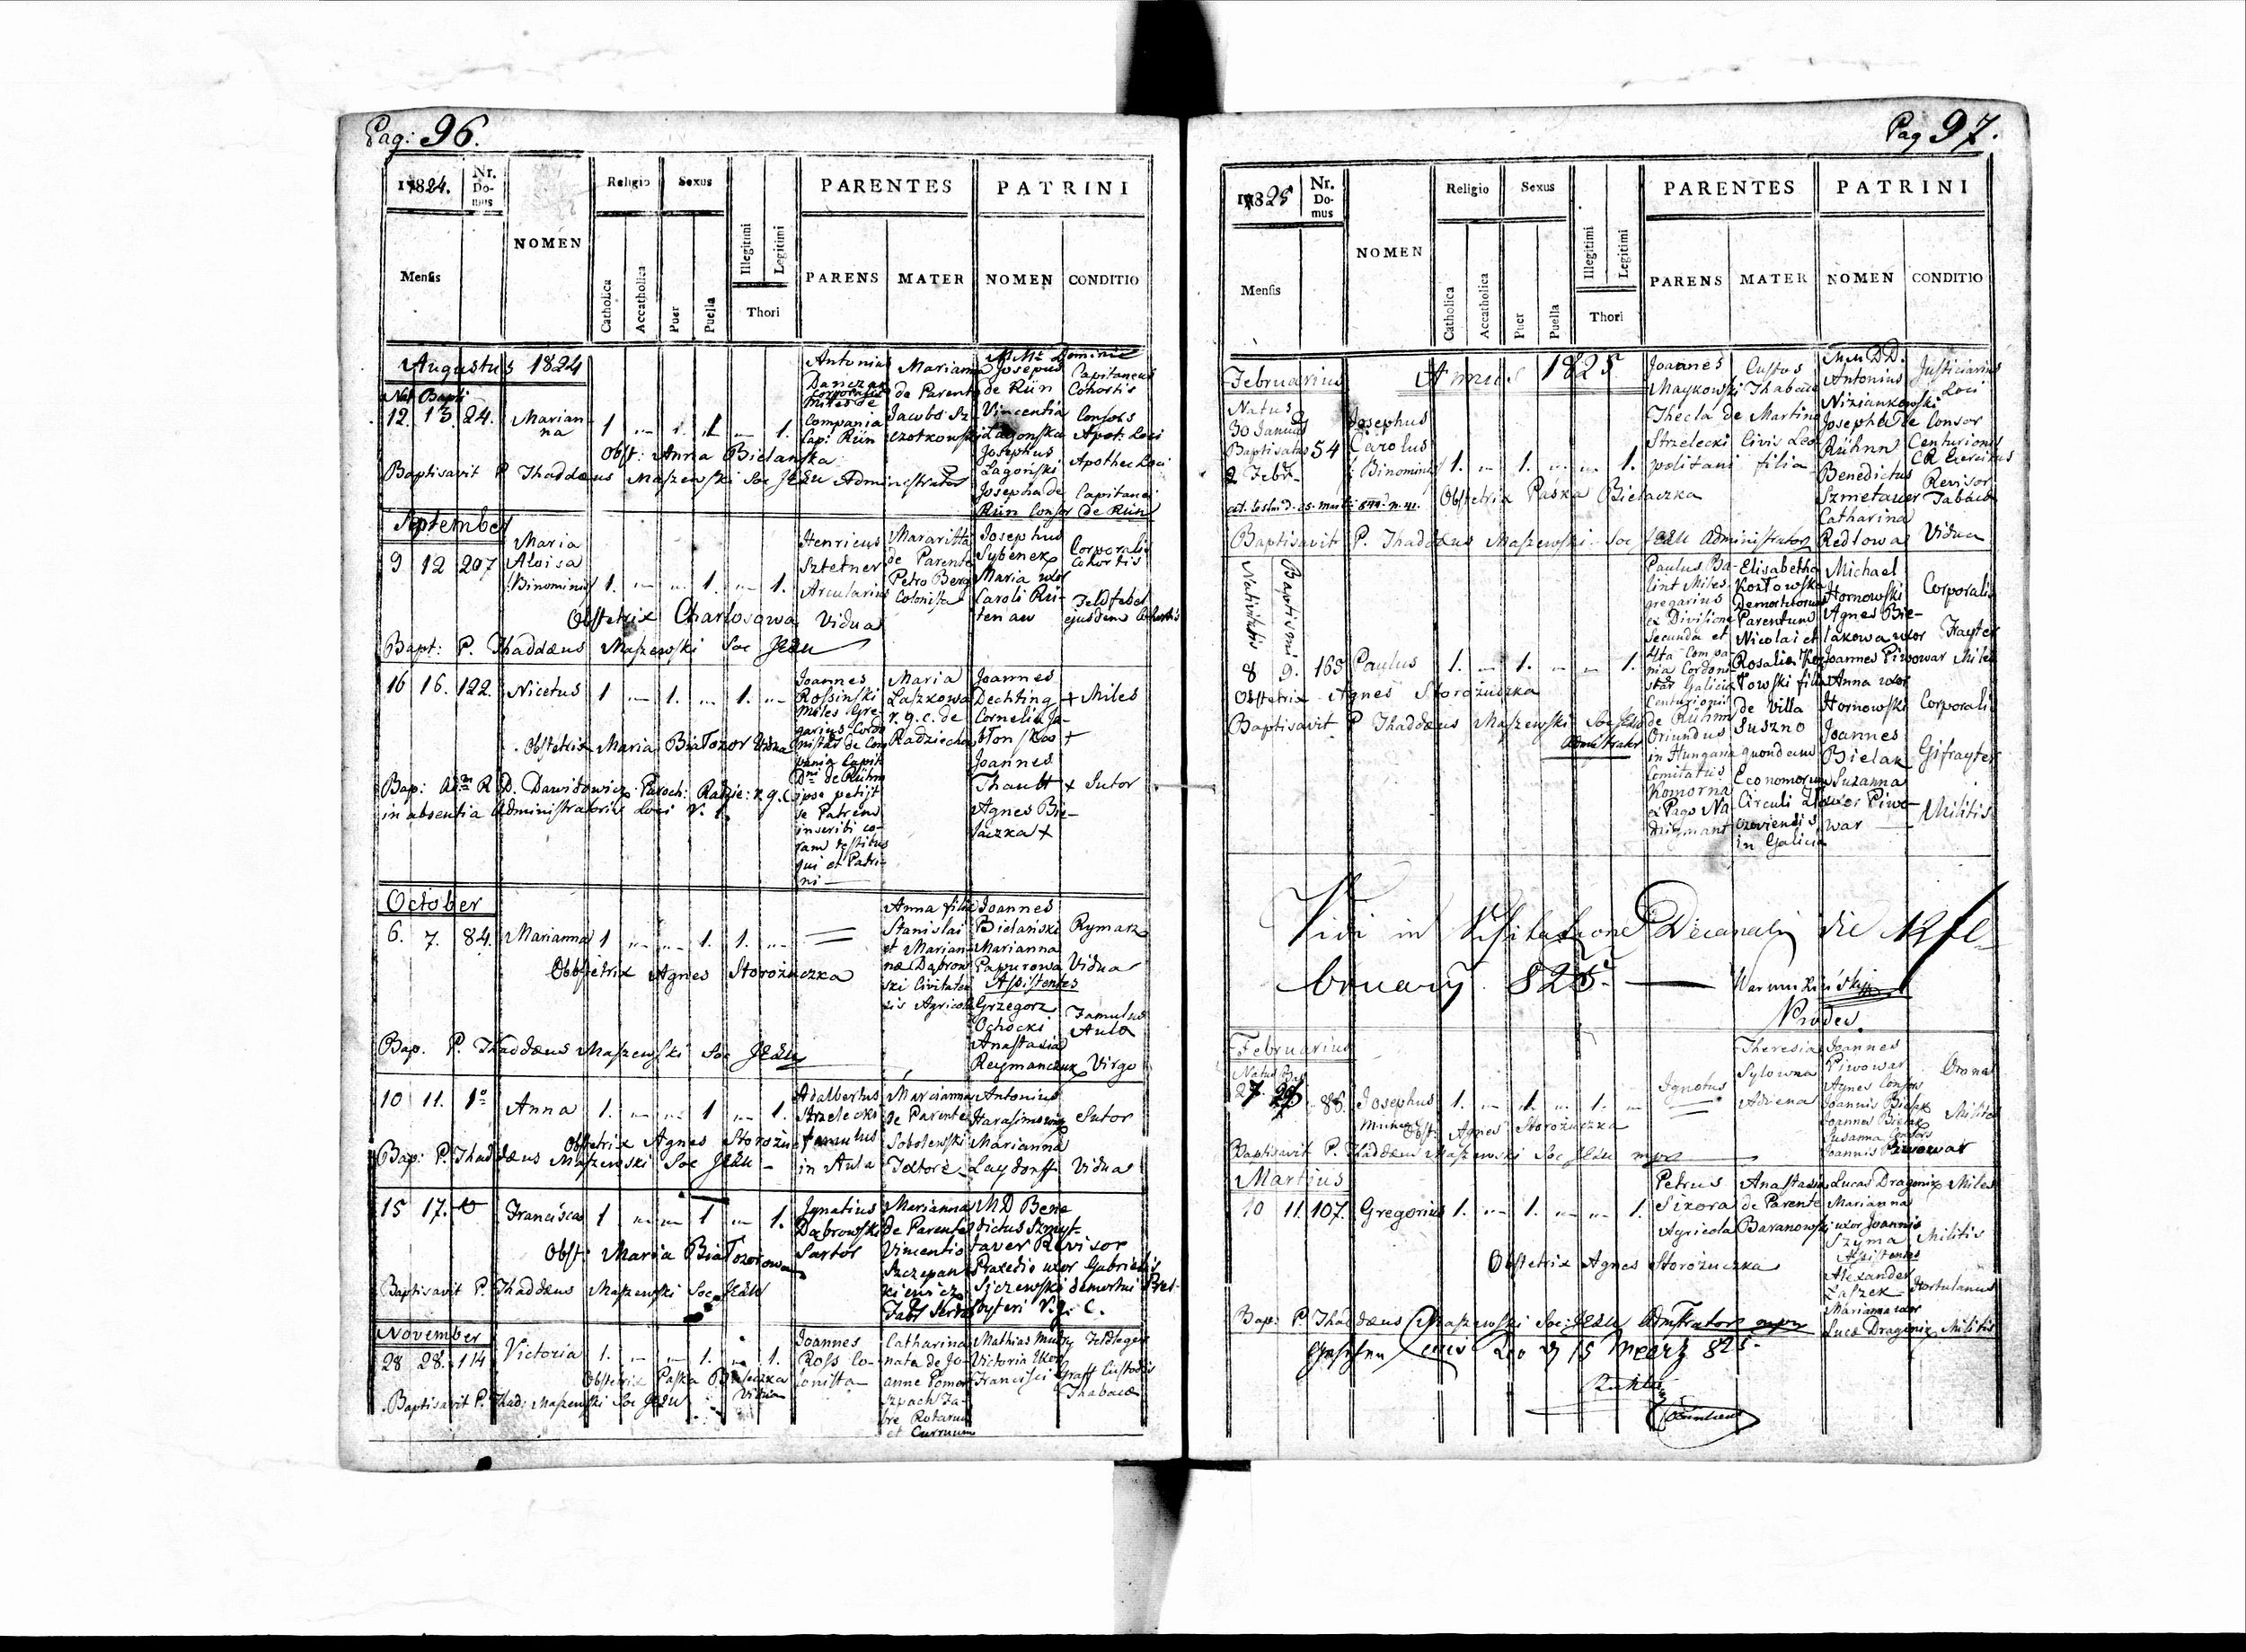 Pag: 96.
1824.
Nr. Domus
NOMEN
Religio
Sexus
Illegitimi
Legitimi
PARENTES
PATRINI
Mensis
Catholica
Accatholica
Puer
Puella
Thori
PARENS
MATER
NOMEN
CONDITIO
Augustus 1824
Nat Bapti
12. 13. 24. Marianna 1 1. 1.
Antonius
Miles de
Compania
Cap: Rün
Marianna
de Parente
Jacobo
Josephus
de Rün
Vincentia
Lagonska
Josephus
Lagoński
Josepha de
Rün Consor
Capitaneus
Cohortis
Consors
Apot: Loci
Apothec Loci
Capitanei
de Rün
Obst: Anna Bielanska
Baptisavit P. Thaddæus Maszewski Soc JESU Administrator
September
9 12 207
Maria
Aloisa
Binominis
1. 1. 1.
Henricus
Sztetner
Arcularius
Margaritta
de Parente
Petro Berg
Colonista
Josephus
Sybenek
Maria uxor
Caroli Rei-
ten au
Corporalis
Cohortis
Feldfebel
ejusdem Cohortis
Obstetrix Charlosowa Vidua
Bapt: P. Thaddæus Maszewski Soc JESU
16 16. 122. Nicetus 1 1. 1.
Joannes
Rossinski
Miles Gre-
garius Cordo
nistar de Com
pania Capit
Dni de Rühm
ipse petijt
se Patrem
inscribi co-
ram testibus
qui et Patri-
ni
Maria
Laszkowa
r. g. c. de
Radziecho
Joannes
Dechting
Cornelia Ja-
Joannes
Thautt
Agnes Bie-
laczka +
+ Miles
+
+ Sutor
Obstetrix Maria Białozor Vidua
Bap: D. Dawidowicz Paroch: Radzie: r. g. c
in absentia Administratoris Loci
October
6. 7. 84. Marianna 1 1. 1.
Anna filia
Stanislai
et Marian-
næ Dąbrow
ski Civitaten
sis Agricola
Joannes
Bielański
Marianna
Papurowa
Assistentes
Grzegorz
Ochocki
Anastasia
Reymanczuk
Rymarz
Vidua
Famulus
Aula
Virgo
Obbstetrix Agnes Storożuczka
Bap. P. Thaddæus Maszewski Soc JESU
10 11. 1o Anna 1. 1 1.
Adalbertus
Strzelecki
famulus
in Aula
Marcianna
de Parente
Sobolewski
Textore
Antonius
Harasimowicz
Marianna
Laydorff
Sutor
Vidua
Obstetrix Agnes
Bap: P. Thaddæus Maszewski Soc JESU
15 17. Francisca 1 1 1.
Ignatius
Dąbrowski
Sartor
Marianna
de Parente
Vincentio
Szczepan
kiewicz
MD Bene
dictus Szmyt-
taver Revisor
Praxedis uxor Gabrielis
Siczewski demortui Pres-
byteri r. g. C.
Obst: Maria Białozorowa
Baptisavit P. Thaddæus Maszewski Soc JESU
November
28 28. 114 Victoria 1. 1. 1.
Joannes
Ross Co-
lonista
Catharina
nata de Jo-
anne Pomer
Szpach Fa-
bre Rotarum
et Curruum
Mathias
Victoria Uxor
Francisci Graff Custodis
Thabacæ
Obstetrix Paska Bieleczka
Vidua
Baptisavit P. Thad: Maszewski Soc JESU
Pag 97.
1825
Nr. Domus
NOMEN
Religio
Sexus
Illegitimi
Legitimi
PARENTES
PATRINI
Mensis
Catholica
Accatholica
Puer
Puella
Thori
PARENS
MATER
NOMEN
CONDITIO
Februarius Annus 1825
Natus
30 Januar
Baptisatus
2 Febr.
54
Josephus
Carolus
Binominis
1. 1. 1.
Joannes Custos
Maykowski Thabacæ
Thecla de Martino
Strzelecki Civis Leo
politani filia
MM DD.
Antonius
Niziankowski
Josepha de
Rühnn
Benedictus
Szmetauer
Catharina
Redlowa
Justiciarius
Loci
Consor
Centurionis
CR Exercitus
Revisor
Tabacæ
Vidua
Obstetrix Paska Bielaczka
Baptisavit P. Thaddæus Maszewski Soc JESU Administrator
Nativitatis
Baptismi
8 9. 165 Paulus 1. 1. 1.
Paulus Ba-
lint Miles
gregarius
ex Divisione
Secunda et
4ta Compa-
nia Cordoni-
star Galicia
Centurionis
de Rühm
Oriundus
in Hungaria
Comitatus
Komorna
ex Pago Na
Elisabetha
Kozłowska
Demortuorum
Parentum
Nicolai et
Rosalia Koz
łowski filia
de Villa
Suszno
quondam
Economorum
Circuli Zło
czoviensis
in Galicia
Michael
Hornowski
Agnes Bie-
lakowa uxor
Joannes Piwowar
Anna uxor
Hornowski
Joannes
Bielak
Suzanna
uxor Piwo-
war
Corporalis
Frayter
Miles
Corporalis
Gifrayter
Militis
Obstetrix Agnes Storożuczka
Baptisavit P Thaddæus Maszewski Soc JESU
Administrator
Vidi in Visitatione Decanali die 12 Fe-
bruarij 825.
Februarius
Natus Bap
27. 88. Josephus 1. 1. 1.
Ignotus
Theresia
Sylowna
Joannes
Piwowar
Agnes Consors
Joannis Bielak
Joannes Bielak
Susanna Consors
Joannis Piwowar
Omnes
Milites
Obst: Agnes Storożuczka
Baptisavit P. Thaddæus Maszewski Soc JESU mpr
Martius
10 11. 107. Gregorius 1. 1. 1.
Petrus
Sikora
Agricola
Anastasia
de Parente
Baranowski
Lucas Dragonix
Marianna
uxor Joannis
Szyma
Assistentes
Alexander
Laszek
Marianna uxor
Lucæ Dragonix
Miles
Militis
Hortulanus
Militis
Obstetrix Agnes Storożuczka
Bap: P Thaddæus Maszewski Soc: JESU Admstrator mpr
15 Mearz 825.